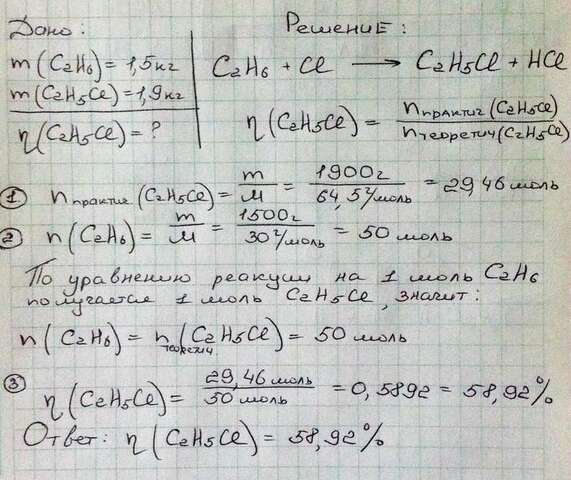 Дано:
m(C2H6)=1,5кг
m(C2H5Cl)=1,9кг
η(C2H5Cl)=?
Решение:
C2H6 + Cl → C2H5Cl + HCl
η(C2H5Cl) = nпрактич(C2H5Cl) / nтеоретич(C2H5Cl)
① nпрактич(C2H5Cl) = m/M = 1900г / 64,5г/моль = 29,46 моль
② n(C2H6) = m/M = 1500г / 30г/моль = 50 моль
По уравнению реакции на 1 моль C2H6
получается 1 моль C2H5Cl, значит:
n(C2H6) = nтеоретич(C2H5Cl) = 50 моль
③ η(C2H5Cl) = 29,46 моль / 50 моль = 0,5892 = 58,92%
Ответ: η(C2H5Cl) = 58,92%